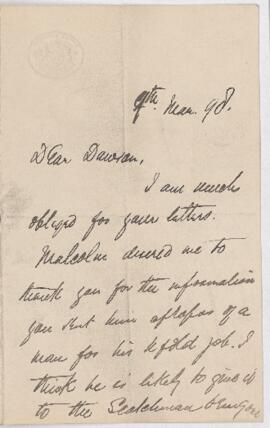 9th Mar. 98.
Dear Dawson,
I am much
obliged for your letters.
Malcolm desired me to
thank you for the information
you sent him apropos of a
man for his job. I
think he is likely to give it
to the Scotchman